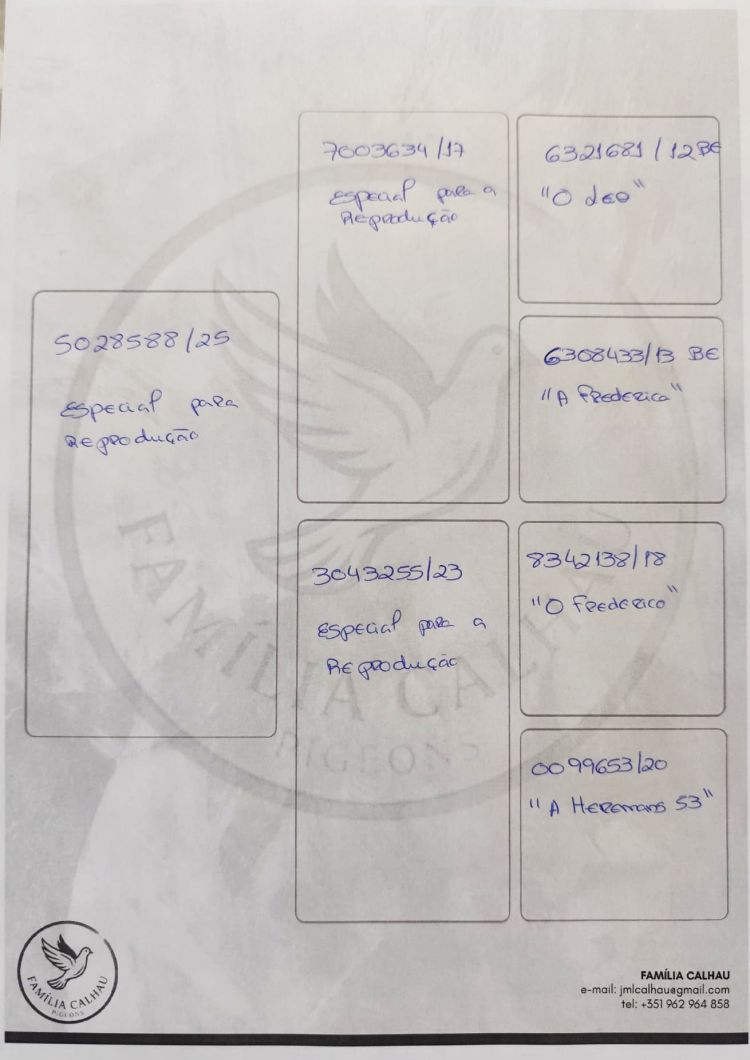 5028588/25
Especial para
Reprodução
7003634/17
Especial para a
Reprodução
3043255/23
Especial para a
Reprodução
6321681/12 BE
"O Leo"
6308433/13 BE
"A Frederica"
8342138/18
"O Frederico"
0099653/20
"A Heremans 53"
FAMÍLIA CALHAU
PIGEONS
FAMÍLIA CALHAU
PIGEONS
FAMÍLIA CALHAU
e-mail: jmlcalhau@gmail.com
tel: +351 962 964 858